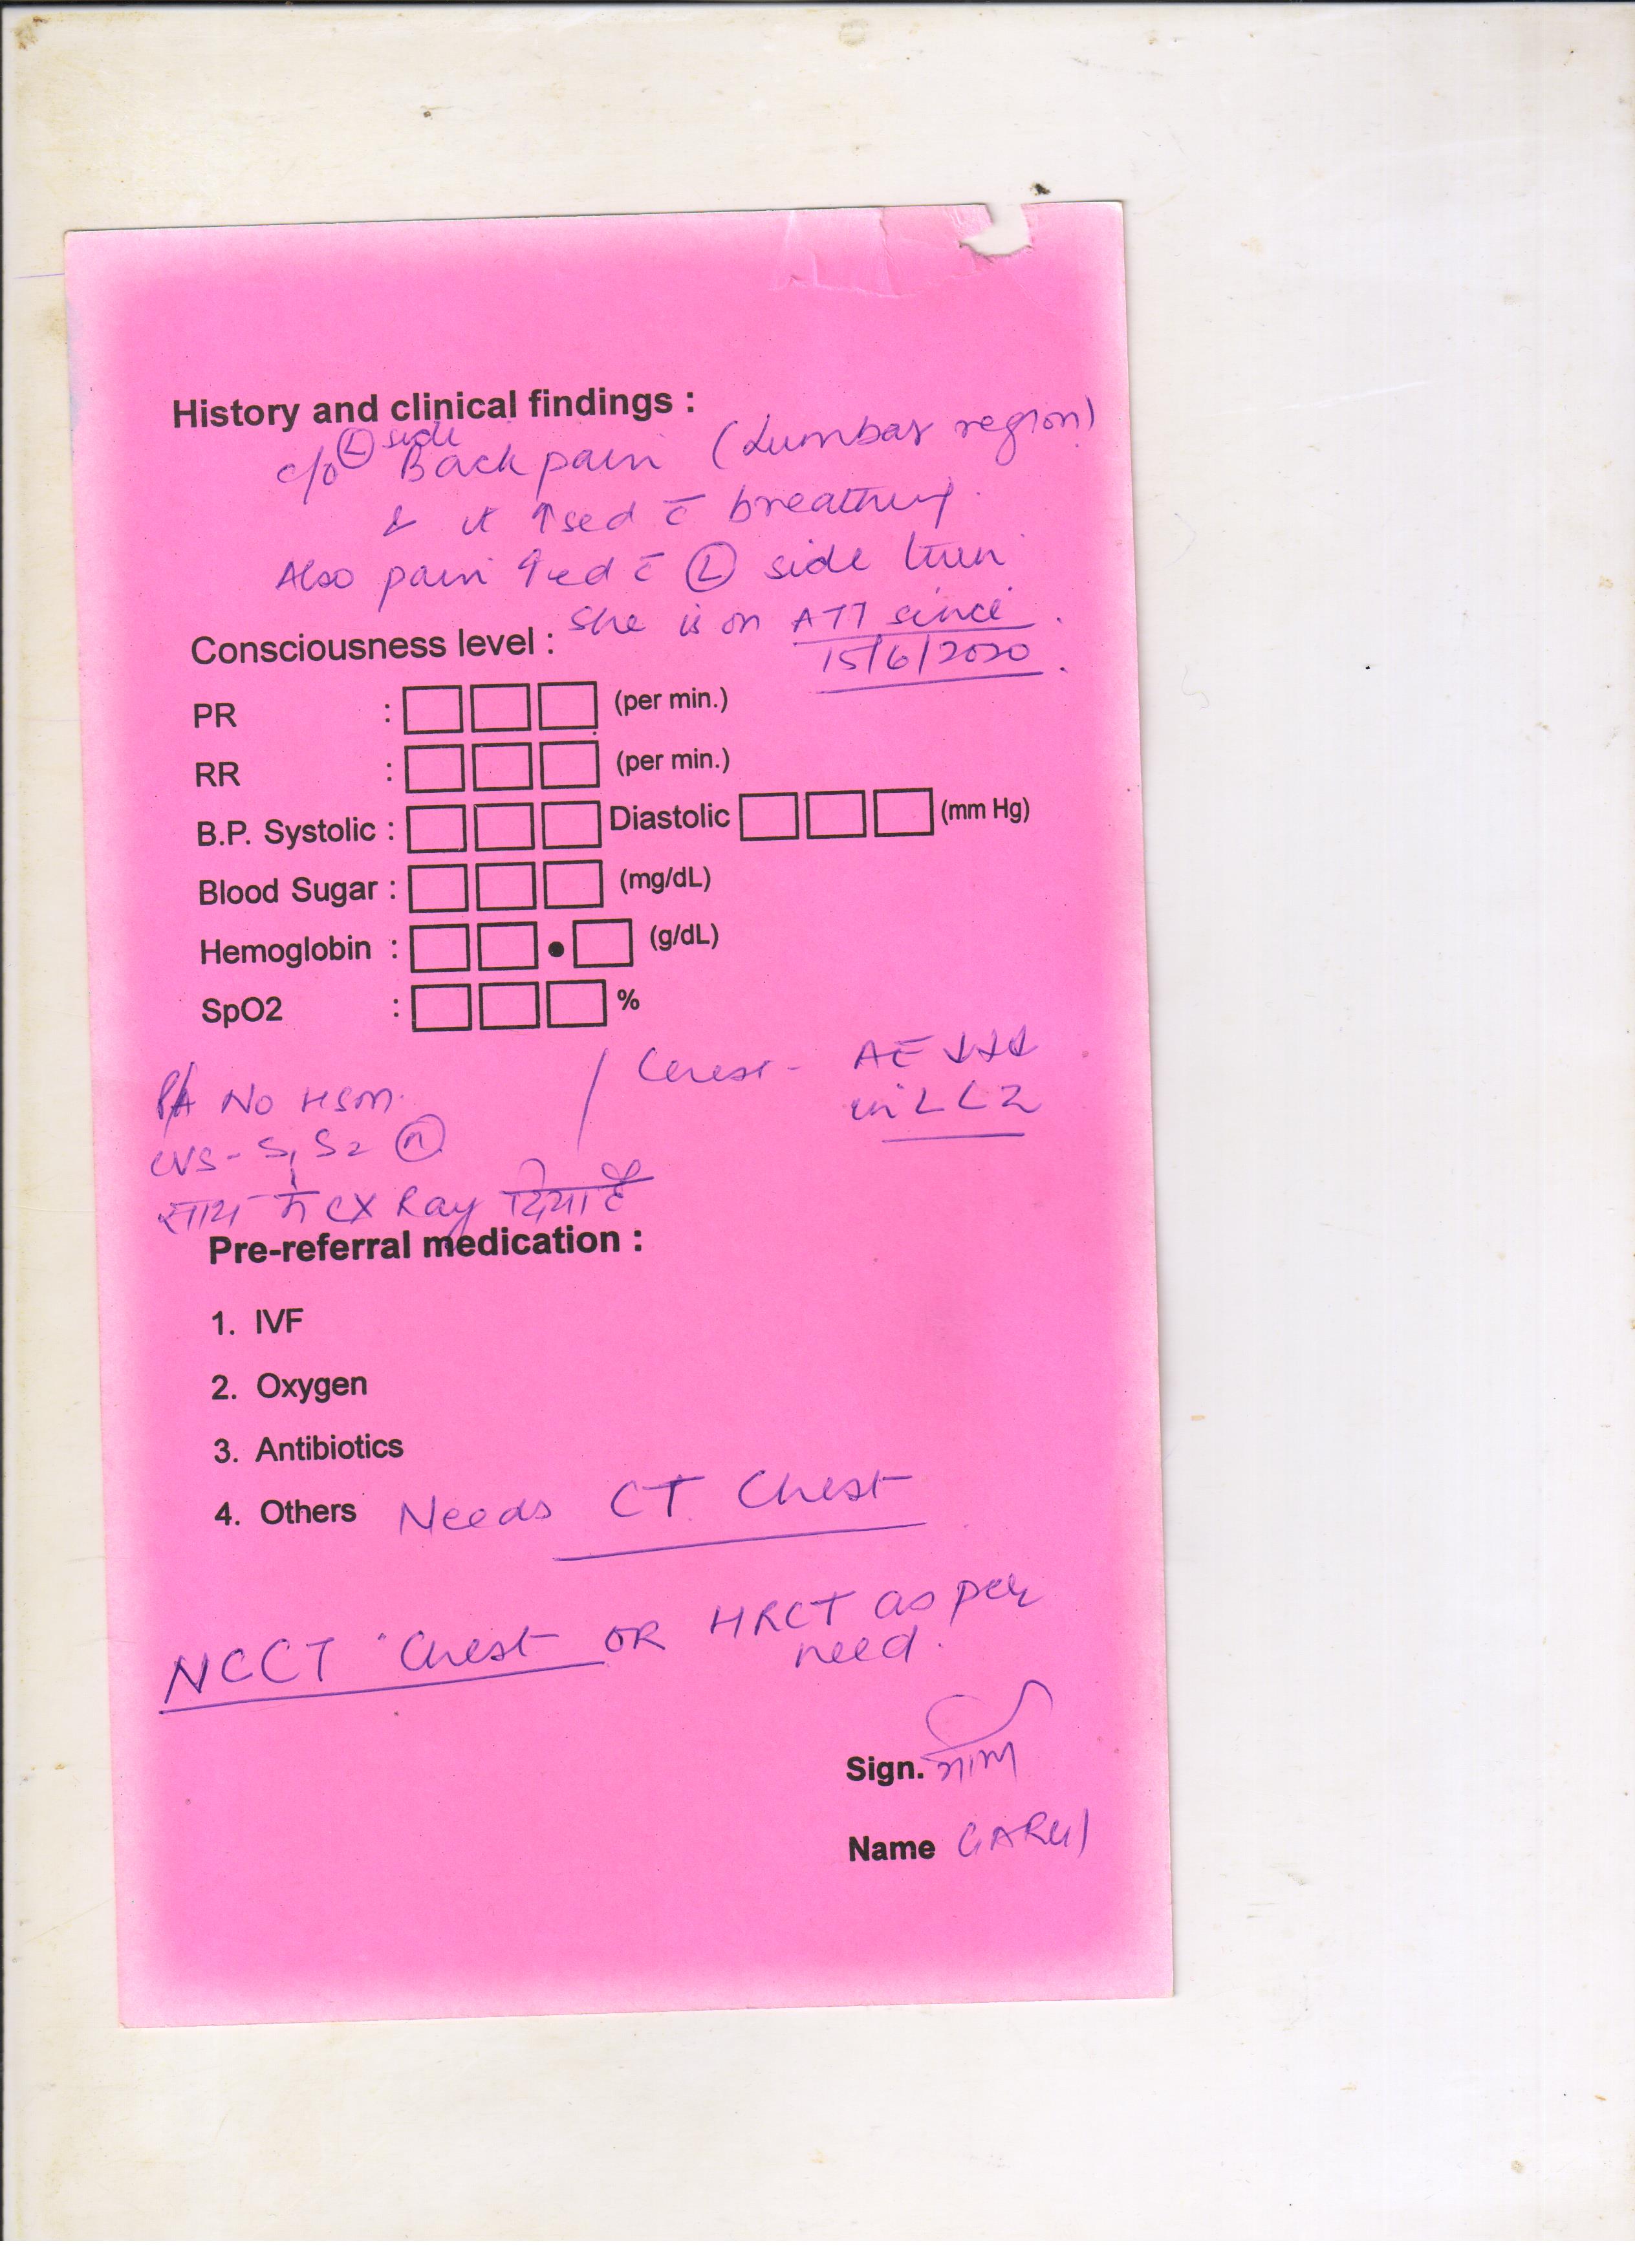 History and clinical findings :
c/o Ⓛ side Back pain (Lumbar region)
& it ↑sed c̄ breathing.
Also pain ↑ed c̄ Ⓛ side turn
she is on ATT since
Consciousness level :
15/6/2020.
PR : (per min.)
RR : (per min.)
B.P. Systolic : Diastolic (mm Hg)
Blood Sugar : (mg/dL)
Hemoglobin : . (g/dL)
SpO2 : %
P/A No HSM. / Chest - AE ↓↓↓
in LLZ
CVS - S1 S2 Ⓝ
साथ में CX Ray दिया है
Pre-referral medication :
1. IVF
2. Oxygen
3. Antibiotics
4. Others Needs CT Chest
NCCT Chest OR HRCT as per
need.
Sign.
Name